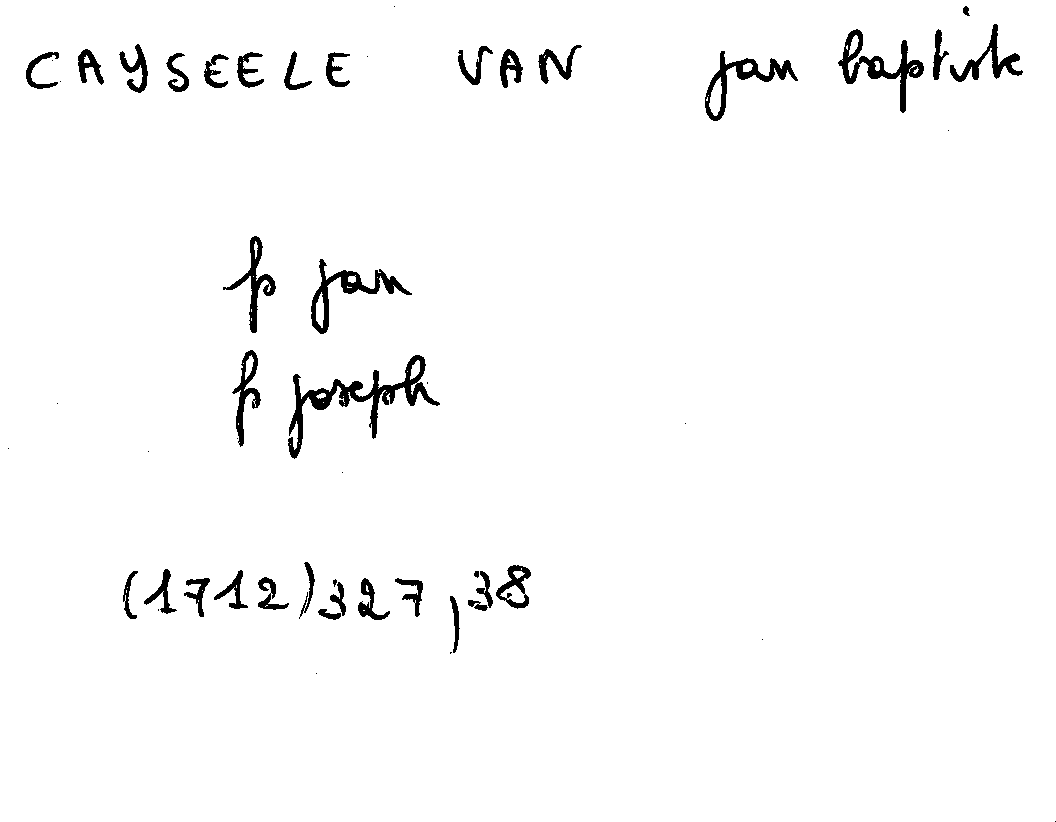 CAYSEELE VAN jan baptiste
p jan
p joseph
(1712) 327, 38